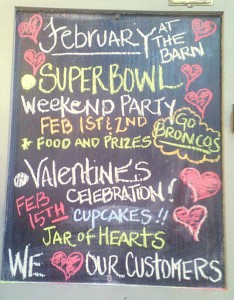 February AT THE BARN
• SUPERBOWL
WEEKEND PARTY
FEB 1ST & 2ND
* FOOD AND PRIZES
GO BRONCOS
• VALENTINES
CELEBRATION!
FEB 15TH
CUPCAKES!!
JAR OF HEARTS
WE OUR CUSTOMERS